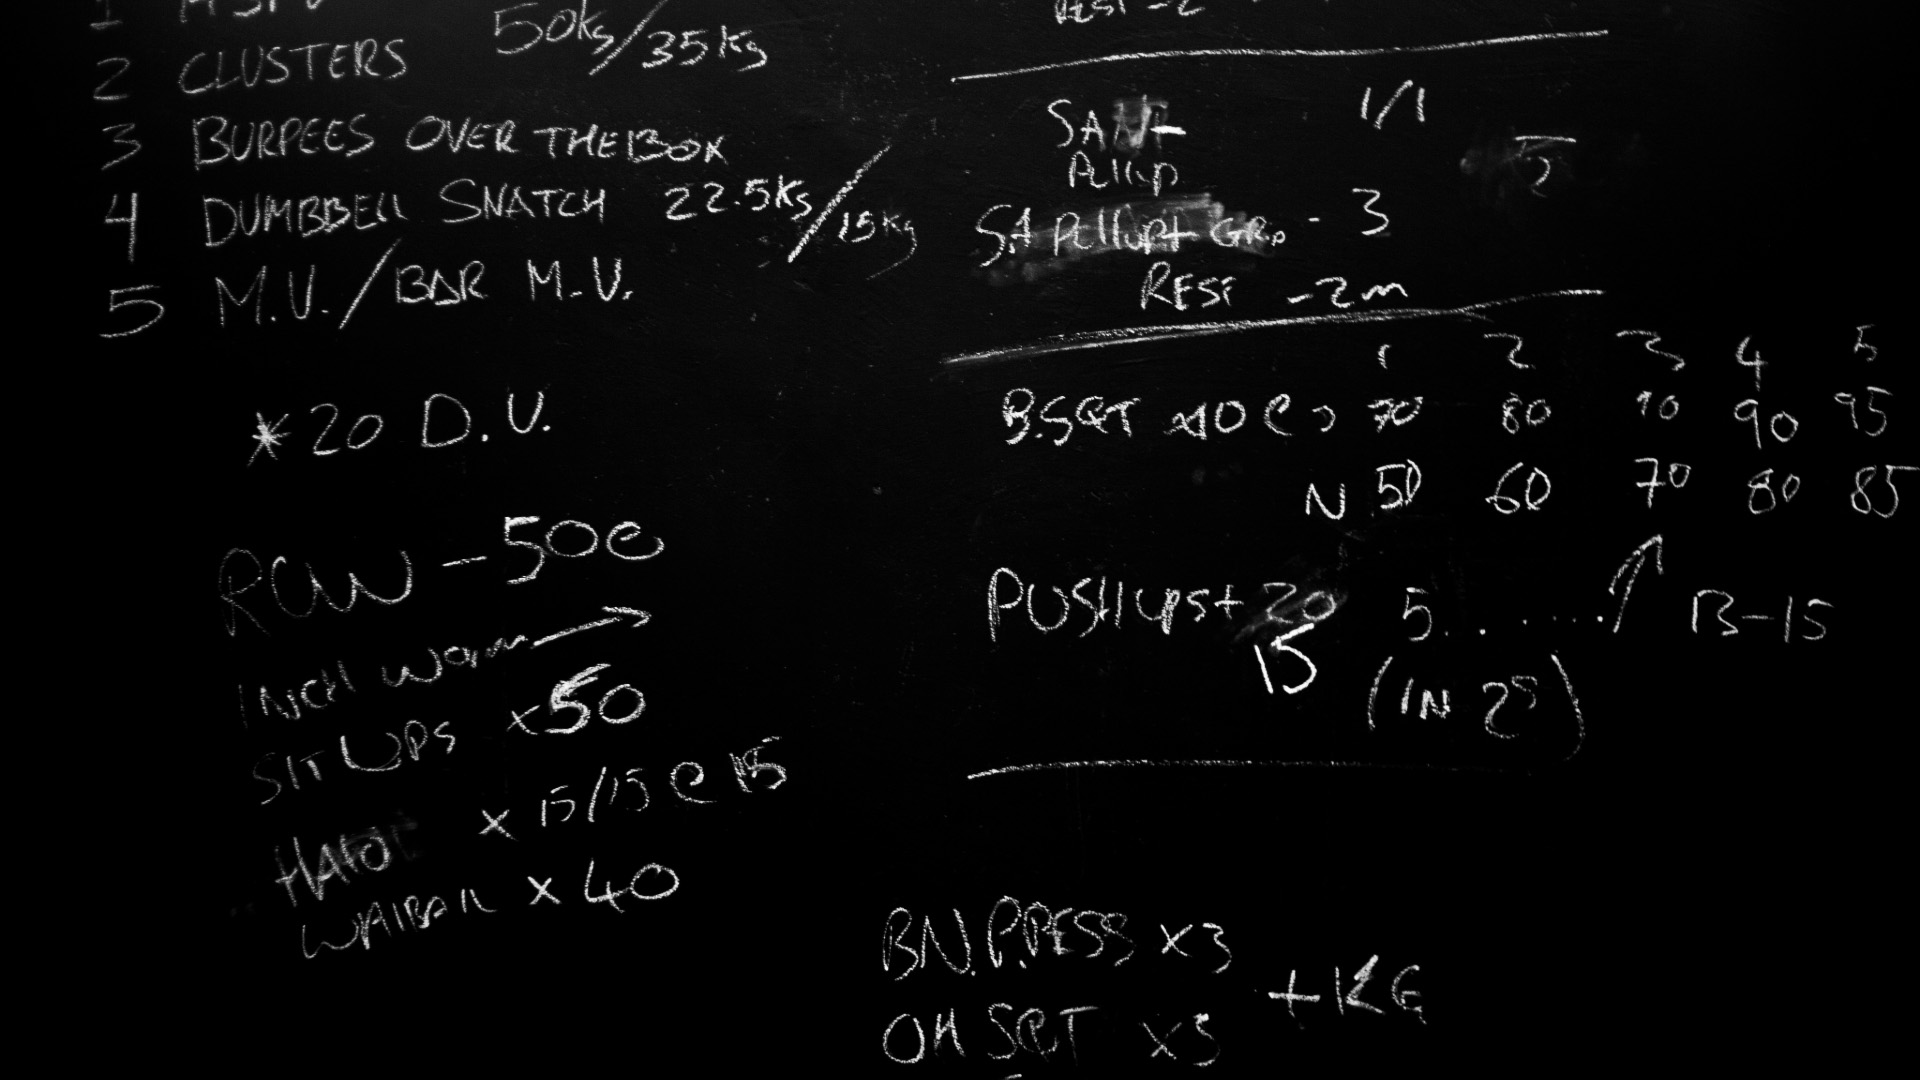 2 CLUSTERS 50kg/35kg
3 BURPEES OVER THE BOX
4 DUMBBELL SNATCH 22.5KG/15KG
5 M.U./BAR M.U.
*20 D.U.
ROW - 500
INCH WORM →
SIT UPS x50
x 15/15 @ 15
WALLBALL x 40
REST - 2
1/1
PULLUP
SA PULLUP+ GRIP - 3
REST - 2m
1 2 3 4 5
B.SQT x10 @ 70 80 90 90 95
N 50 60 70 80 85
PUSHUPS + 20 5....... ↑ B-15
15 (IN 25)
BN.P.PRESS x3
+KG
OH SQT x3